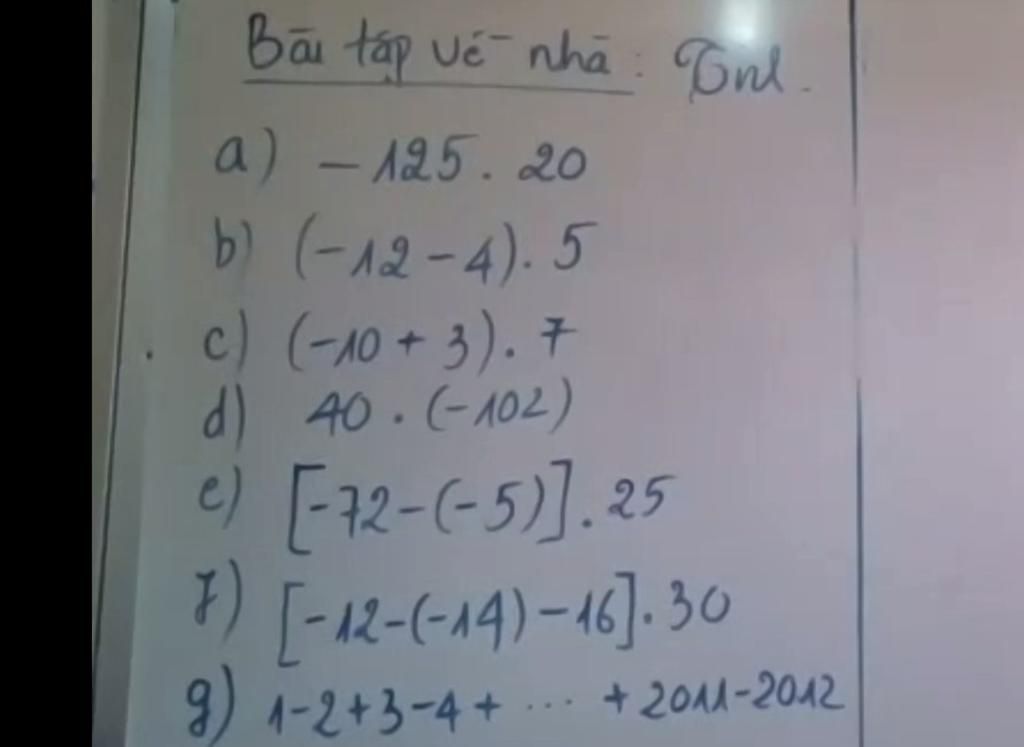 Bài tập về nhà: Tính.
a) -125. 20
b) (-12-4). 5
c) (-10+3). 7
d) 40. (-102)
e) [-72-(-5)]. 25
f) [-12-(-14)-16]. 30
g) 1-2+3-4+ ... +2011-2012